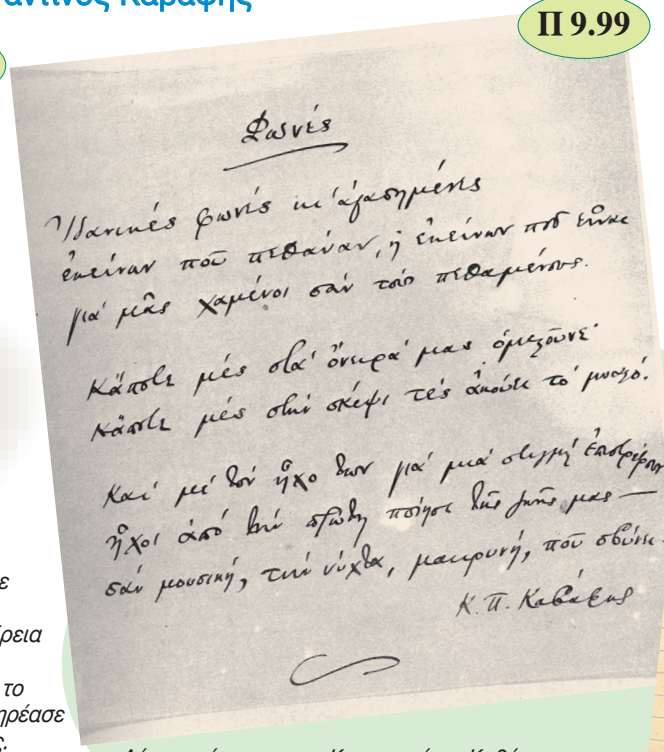 αντίνος Καβάφης
Π 9.99
Φωνές
Ἰδανικές φωνές κι' ἀγαπημένες
ἐκείνων ποῦ πεθάναν, ἤ ἐκείνων ποῦ εἶναι
γιά μᾶς χαμένοι σάν τούς πεθαμένους.
Κάποτε μές στά ὄνειρά μας ὁμιλοῦνε·
κάποτε μές στήν σκέψι τές ἀκούει τό μυαλό.
Καί μέ τόν ἦχο των γιά μιά στιγμή ἐπιστρέφουν
ἦχοι ἀπό τήν πρώτη ποίησι τῆς ζωῆς μας —
σάν μουσική, τήν νύχτα, μακρυνή, ποῦ σβύνει.
Κ. Π. Καβάφης
ε
ρεια
το
ηρέασε